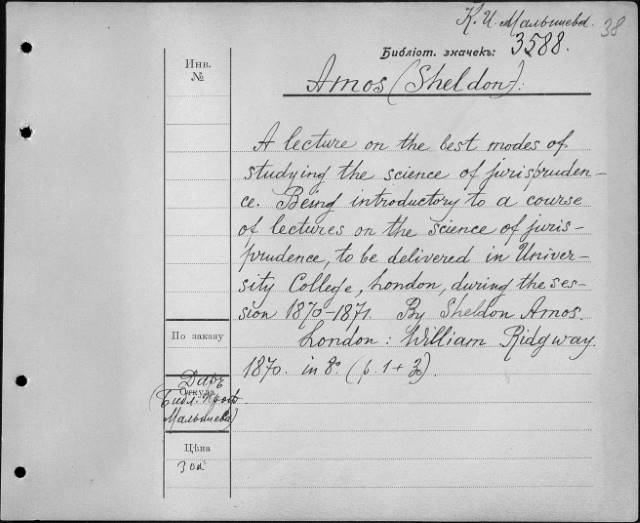 К. И. Малышева. 38
Библіот. значекъ: 3588.
Инв.
№
Amos (Sheldon):
A lecture on the best modes of
studying the science of jurispruden-
ce. Being introductory to a course
of lectures on the science of juris-
prudence, to be delivered in Univer-
sity College, London, during the ses-
sion 1870-1871. By Sheldon Amos.
London: William Ridgway.
1870. in 8º. (p. 1+
По заказу
Даръ
Откуда
(Библ. Проф.
Малышева)
Цѣна